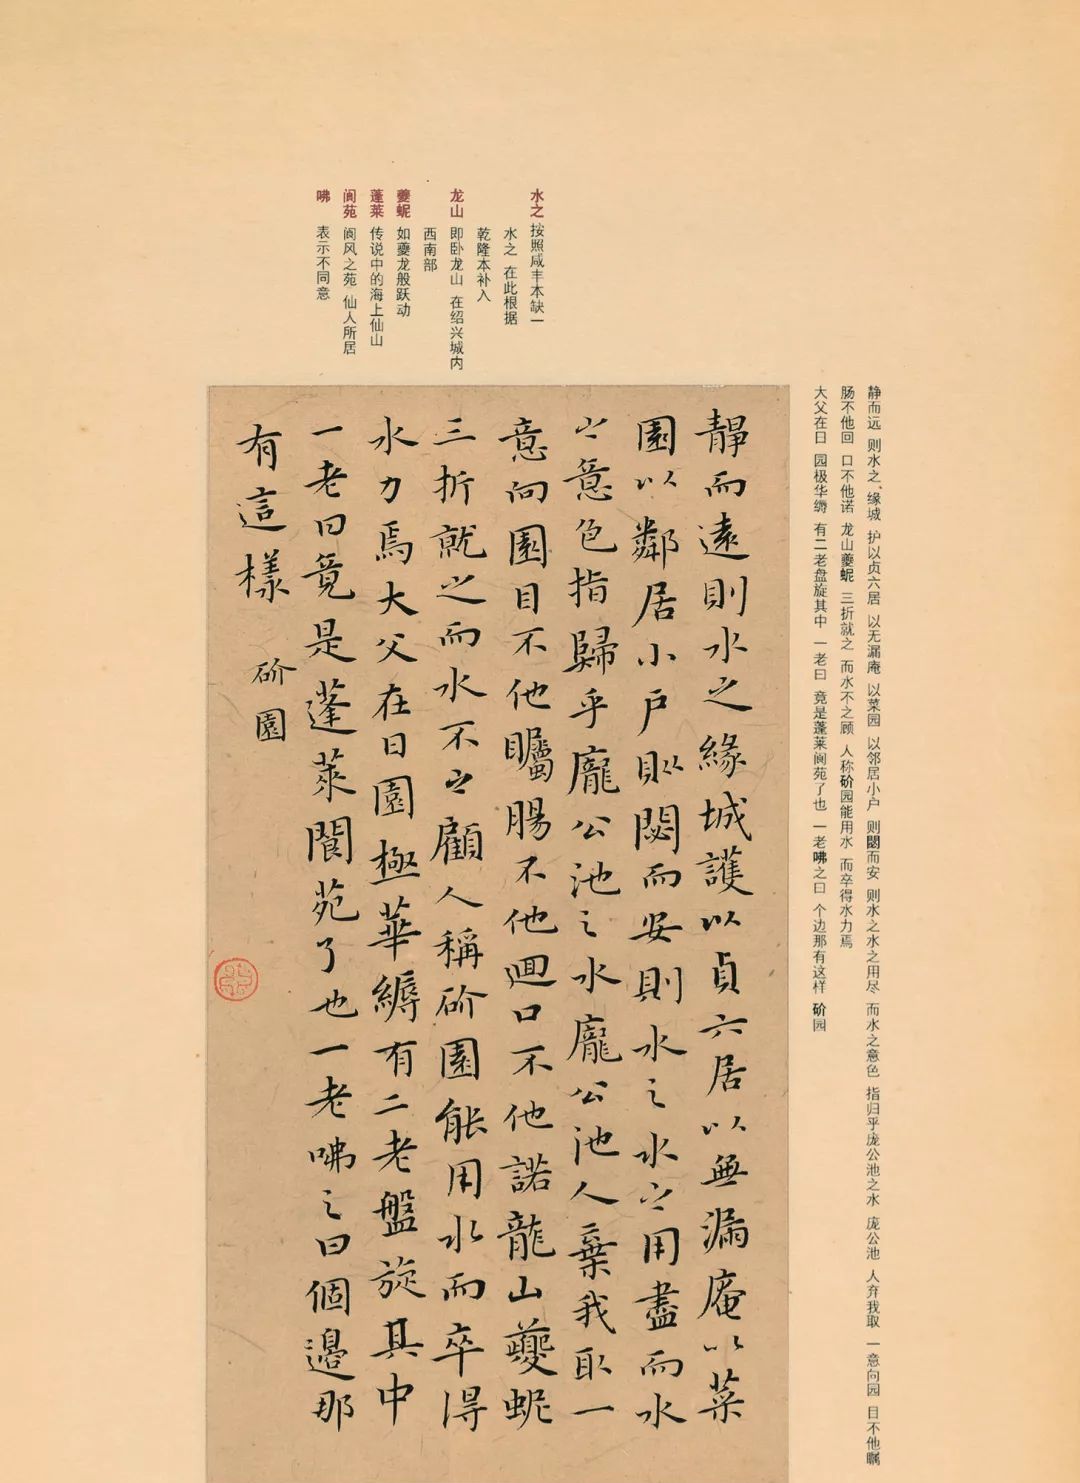 水之 按照咸丰本缺一
水之 在此根据
乾隆本补入
龙山 即卧龙山 在绍兴城内
西南部
夔蚭 如夔龙般跃动
蓬莱 传说中的海上仙山
阆苑 阆风之苑 仙人所居
咈 表示不同意
静而远 则水之、缘城 护以贞六居 以无漏庵 以菜园 以邻居小户 则閟而安 则水之水之用尽 而水之意色 指归乎庞公池之水 庞公池 人弃我取 一意向园 目不他瞩
肠不他回 口不他诺 龙山夔蚭 三折就之 而水不之顾 人称砎园能用水 而卒得水力焉
大父在日 园极华缛 有二老盘旋其中 一老曰 竟是蓬莱阆苑了也 一老咈之曰 个边那有这样 砎园
靜而遠則水之緣城護以貞六居以無漏庵以菜
園以鄰居小戶則閟而安則水之水之用盡而水
之意色指歸乎龐公池之水龐公池人棄我取一
意向園目不他矚腸不他迴口不他諾龍山夔蚭
三折就之而水不之顧人稱砎園能用水而卒得
水力焉大父在日園極華縟有二老盤旋其中
一老曰竟是蓬萊閬苑了也一老咈之曰個邊那
有這樣 砎園